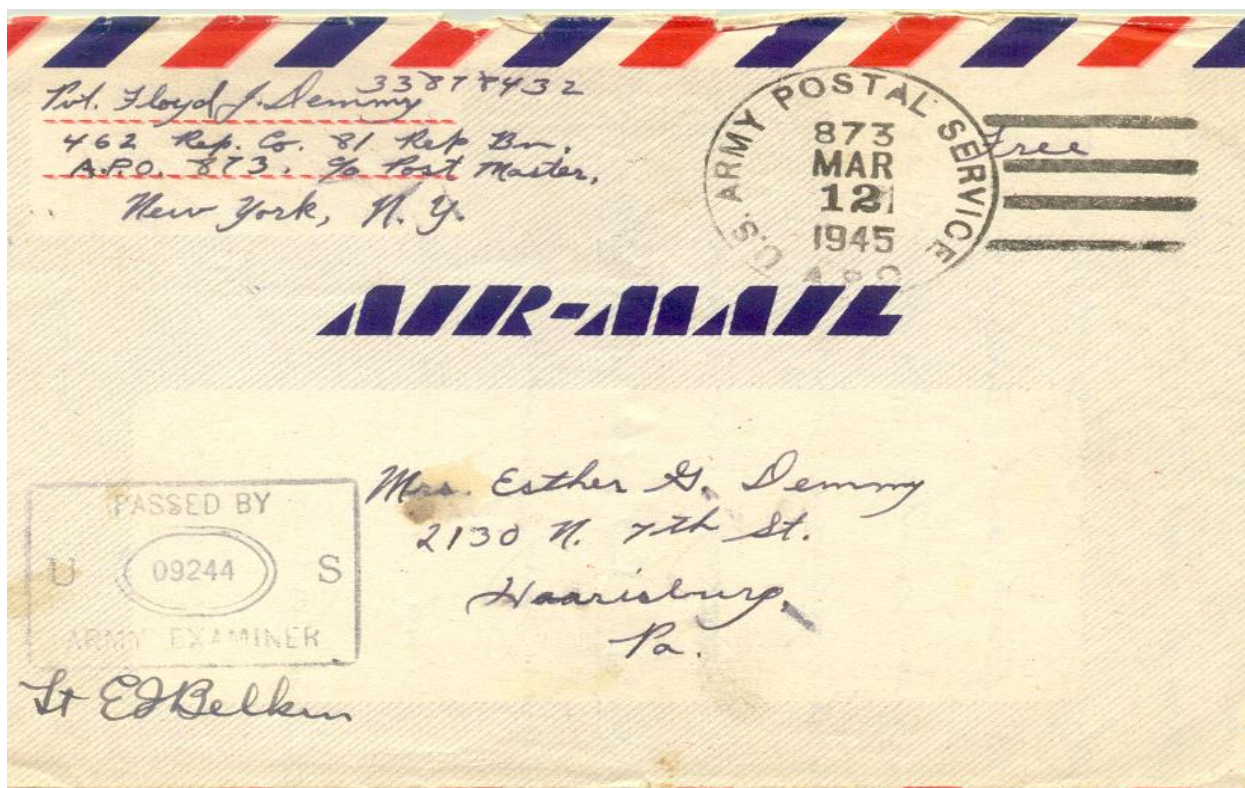 Pvt. Floyd J. Demmy 33878432
462 Rep. Co. 81 Rep Bn.
A.P.O. 873, c/o Post Master,
New York, N. Y.
U.S. ARMY POSTAL SERVICE
873
MAR
12
1945
A.P.O.
Free
AIR-MAIL
Mrs. Esther G. Demmy
2130 N. 7th St.
Haarisburg,
Pa.
PASSED BY
U 09244 S
ARMY EXAMINER
Lt EJBelkin